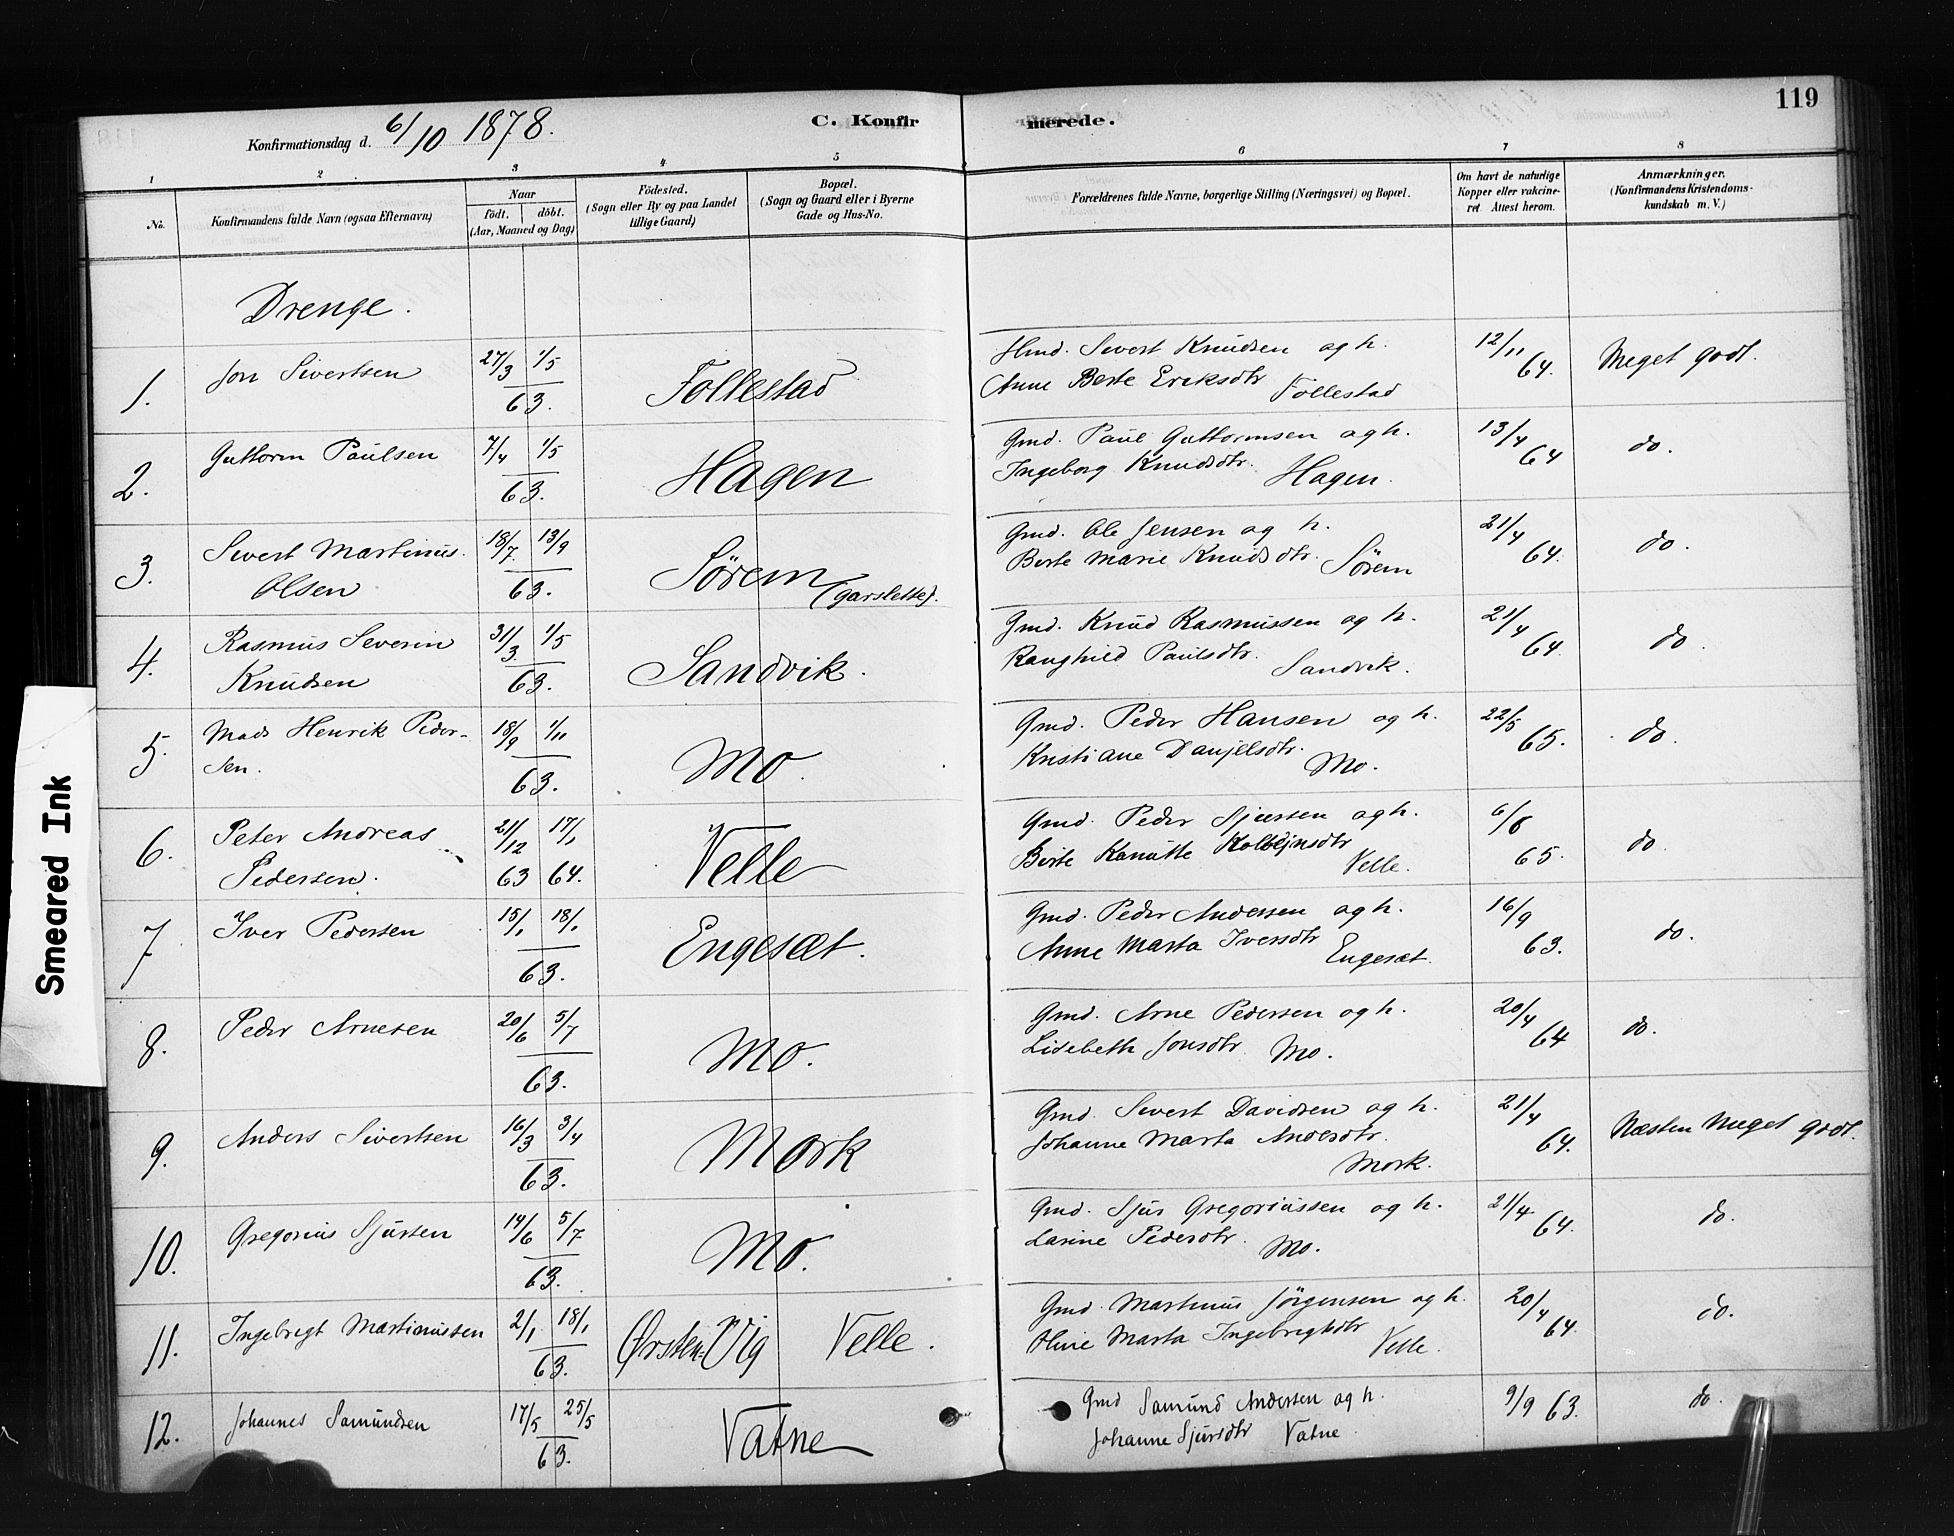 119
Konfirmationsdag d. 6/10 1878.
C. Konfirmerede.
1 2 3 4 5 6 7 8
No.
Konfirmandens fulde Navn (ogsaa Efternavn)
Naar
født. døbt.
(Aar, Maaned og Dag)
Födested.
(Sogn eller By og paa Landet
tillige Gaard)
Bopæl.
(Sogn og Gaard eller i Byerne
Gade og Hus-No.
Forældrenes fulde Navne, borgerlige Stilling (Næringsvei) og Bopæl.
Om havt de naturlige
Kopper eller vakcine-
ret. Attest herom.
Anmærkninger.
(Konfirmandens Kristendoms-
kundskab m. V.)
Drenge.
1. Jon Sivertsen 27/3 1/5 63. Follestad
Hmd. Sivert Knudsen og h. 12/11 64. Meget godt.
Anne Berte Eriksdtr Follestad
2. Guttorm Paulsen 7/4 1/5 63. Hagen
Gmd. Paul Guttormsen og h. 13/4 64 do.
Ingeborg Knudsdtr. Hagen.
3. Sivert Martinus 18/7 13/9 Sørem
Olsen 63. (Garslette).
Gmd. Ole Jensen og h. 21/4 64. do.
Berte Marie Knudsdtr. Sörem
4. Rasmus Severin 31/3. 1/5 Sandvik.
Knudsen 63.
Gmd. Knud Rasmussen og h. 21/4 64. do.
Ranghild Paulsdtr. Sandvik.
5. Mads Henrik Peder- 18/9 1/11 Mo.
sen. 63.
Gmd. Peder Hansen og h. 22/5 65. do.
Kristiane Danjelsdtr. Mo.
6. Peter Andreas 21/12 17/1 Velle
Pedersen. 63 64.
Gmd. Peder Sjursen og h. 6/8 65. do
Berte Kanutte Kolbejnsdtr Velle.
7 Iver Pedersen 15/1 18/1 63. Engesæt.
Gmd. Peder Andersen og h. 16/9 63. do.
Anne Marta Iversdtr Engesæt.
8. Peder Arnesen 20/6 5/7 63. Mo.
Gmd. Arne Pedersen og h. 20/4 64 do.
Lisebeth Jonsdtr. Mo.
9. Anders Sivertsen 16/3 3/4 63. Mork
Gmd. Sivert Davidsen og h. 21/4 64. Næsten Meget godt.
Johanne Marta Andersdtr.
Mork.
10. Gregorius Sjursen 14/6 5/7 63. Mo.
Gmd. Sjur Gregoriussen og h. 21/4. 64. do.
Larine Pedersdtr. Mo.
11. Ingebrigt Martinussen 2/1 18/1 63. Ørsten-Vig Velle.
Gmd. Martinus Jörgensen og h. 20/4 64. do.
Oline Marta Ingebrigtsdtr Velle.
12. Johannes Samundsen 17/5 25/5 63. Vatne
Gmd Samund Andersen og h. 9/9 63. do
Johanne Sjursdtr Vatne
Smeared Ink